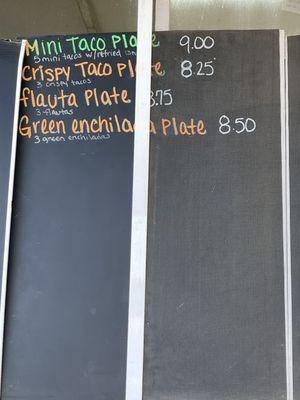 Mini Taco Plate 9.00
5 mini tacos w/refried
Crispy Taco Plate 8.25
3 crispy tacos
flauta Plate 8.75
3-flautas
Green enchilada Plate 8.50
3 green enchiladas